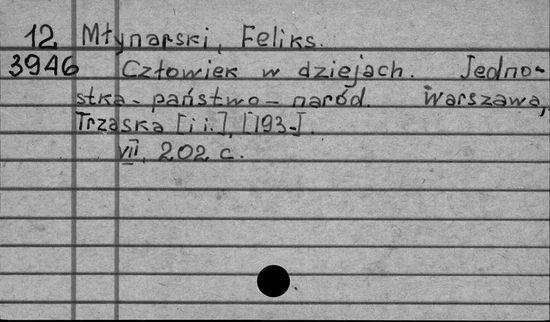 12 Młynarski, Feliks.
3946 Człowiek w dziejach. Jedno-
stka - państwo - naród. Warszawa,
Trzaska [i i.], [193-].
VII, 202 c.